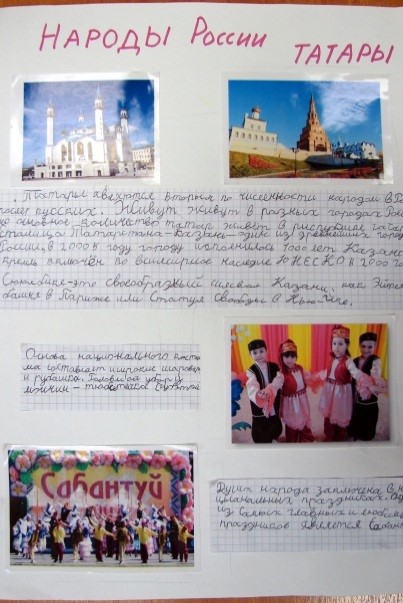 НАРОДЫ РОССИИ
ТАТАРЫ
Татары являются вторым по численности народом в Р
после русских. Живут живут в разных городах Рос
но основное количество татар живет в республике Тата
столица Татарстана - Казань - один из древнейших город
России, в 2000 году городу исполнилось 1000 лет Казанс
кремль включён во всемирное наследие ЮНЕСКО в 2000 го
Сююмбике - это своеобразный символ Казани, как Эйфеле
башня в Париже или Статуя Свободы в Нью-
Основа национального костю
ма составляет широкие шаровар
и рубашка. Головной убор у
мужчин - тюбетейка
Сабантуй
Душа народа заключена в н
циональных праздниках. Од
из самых главных и любим
праздников является Сабан